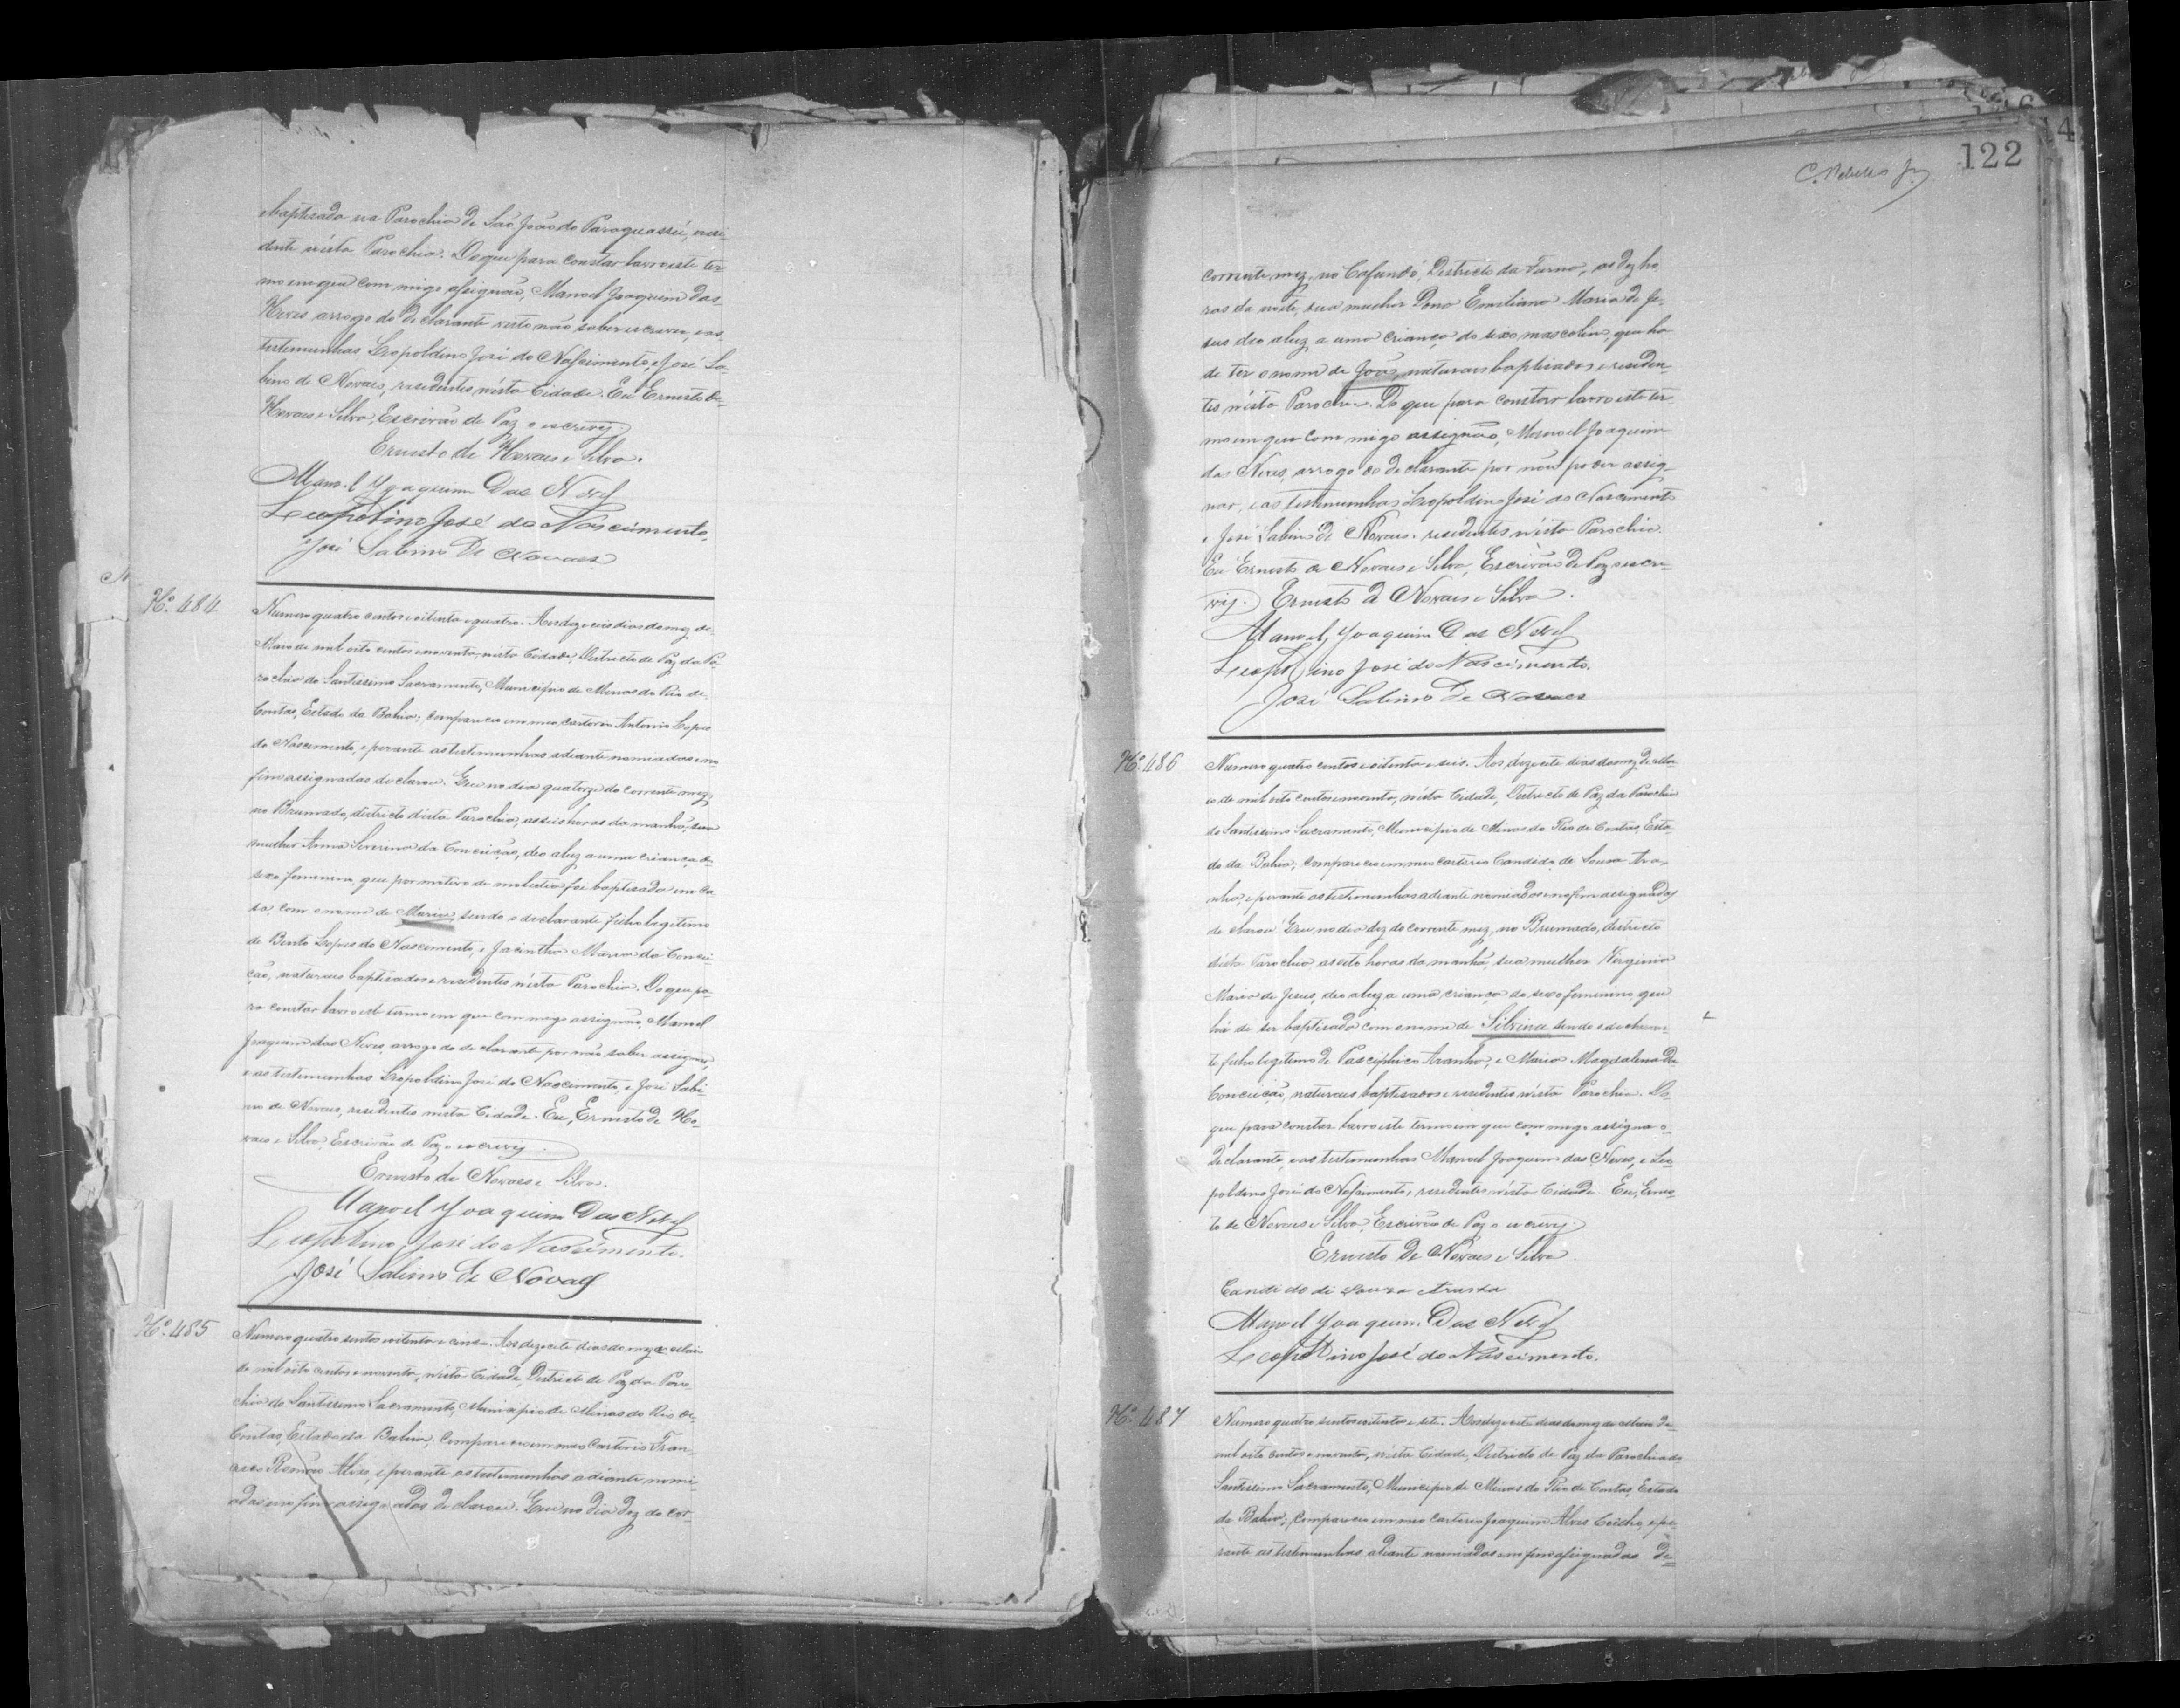 e baptisada na Parochia de São João do Paraguassú, e resi-
dente n'esta Parochia. Do que para constar lavro este ter-
mo em que com migo assignão, Manoel Joaquim das
Neves arrogo do declarante visto não saber escrever, e as
testimunhas Leopoldino José do Nascimento, e José Sa-
bino de Novaes, residentes n'esta Cidade. Eu Ernesto de
Novaes e Silva, Escrivão de Paz o escrevy
Ernesto de Novaes e Silva.
Manoel Joaquim Das Neves
Leopoldino José do Nascimento,
José Sabino De Novaes
Nº. 484
Numero quatro centos e oitenta e quatro. Aos deze seis dias do mez de
Maio de mil oito centos e noventa, nesta Cidade, Districto de Paz da Pa-
rochia do Santissimo Sacramento, Municipio de Minas do Rio de
Contas, Estado da Bahia; compareceu em meo cartorio Antonio Lopes
do Nascimento, e perante as testimunhas adiante nomiadas e no
fim assignadas declarou: Que no dia quatorze do corrente mez,
no Brumado, districto d'esta Parochia, as seis horas da manhã, sua
mulher Anna Severina da Conceição, deo a luz a uma criança do
sexo feminino, que por motivo de molestia foi baptisada em ca-
sa, com o nome de Maria, sendo o declarante filho legitimo
de Bento Lopes do Nascimento, e Jacintha Maria da Concei-
ção, naturaes baptisados e residentes n'esta Parochia. Do que pa-
ra constar lavro este termo em que com migo assignão, Manoel
Joaquim das Neves, arrogo do declarante por não saber assignar,
e as testimunhas Leopoldino José do Nascimento, e José Sabi-
no de Novaes, residentes nesta Cidade. Eu, Ernesto de No-
vaes e Silva, Escrivão de Paz o escrevy.
Ernesto de Novaes e Silva.
Manoel Joaquim Das Neves
Leopoldino José do Nascimento.
José Sabino de Novaes
Nº. 485
Numero quatro sentos e oitenta e cinco. Aos dezesete dias do mez de Maio
de mil oito centos e noventa, n'esta Cidade, Districto de Paz da Paro-
chia do Santissimo Sacramento, Municipio de Minas do Rio de
Contas, Estado da Bahia, compareceu em meo Cartorio Fran-
cisco Alves, e perante as testimunhas adiante nomi-
adas e no fim assignadas declarou: Que no dia dez do cor-
122
corrente mez, no Cafundó, Districto da Furna, as dez ho-
ras da noite, sua mulher Dona Emiliana Maria de Je-
sus deo a luz a uma criança do sexo masculino, que ha
de ter o nome de João, naturaes baptisados e residen-
tes n'esta Parochia. Do que para constar lavro este ter-
mo em que com migo assignão, Manoel Joaquim
das Neves, arrogo do declarante por não poder assig-
nar, e as testimunhas Leopoldino José do Nascimento
e José Sabino de Novaes, residentes n'esta Parochia.
Eu Ernesto de Novaes e Silva, Escrivão de Paz o escre-
vy. Ernesto de Novaes e Silva.
Manoel Joaquim Das Neves
Leopoldino José do Nascimento.
José Sabino De Novaes
Nº. 486
Numero quatro centos e oitenta e seis. Aos dezesete dias do mez de Ma-
io de mil oito centos e noventa, n'esta Cidade, Districto de Paz da Parochia
do Santissimo Sacramento, Municipio de Minas do Rio de Contas, Esta-
do da Bahia; compareceu em meo cartorio Candido de Sousa Ara-
nha, e perante as testimunhas adiante nomiadas e no fim assignadas
declarou: Que, no dia dez do corrente mez, no Brumado, districto
d'esta Parochia, as oito horas da manhã, sua mulher Virginia
Maria de Jesus, deo a luz a uma criança do sexo feminino que
há de ser baptisada com o nome de Silvina sendo o declaran-
te filho legitimo de Aranha, e Maria Magdalena da
Conceição, naturaes baptisados e residentes n'esta Parochia. Do
que para constar lavro este termo em que com migo assigna o
declarante, e as testimunhas Manoel Joaquim das Neves, e Leo-
poldino José do Nascimento, residentes n'esta Cidade. Eu, Ernes-
to de Novaes e Silva, Escrivão de Paz o escrevy.
Ernesto de Novaes e Silva
Candido di Souza Aranha
Manoel Joaquim Das Neves
Leopoldino José do Nascimento.
Nº. 487
Numero quatro sentos oitenta e sete. Aos dezesete dias do mez de Maio de
mil oito centos e noventa, n'esta Cidade, Districto de Paz da Parochia do
Santissimo Sacramento, Municipio de Minas do Rio de Contas, Estado
da Bahia; compareceu em meo Cartorio Joaquim Alves Coelho, e pe-
rante as testimunhas adiante nomiadas e no fim assignadas de-